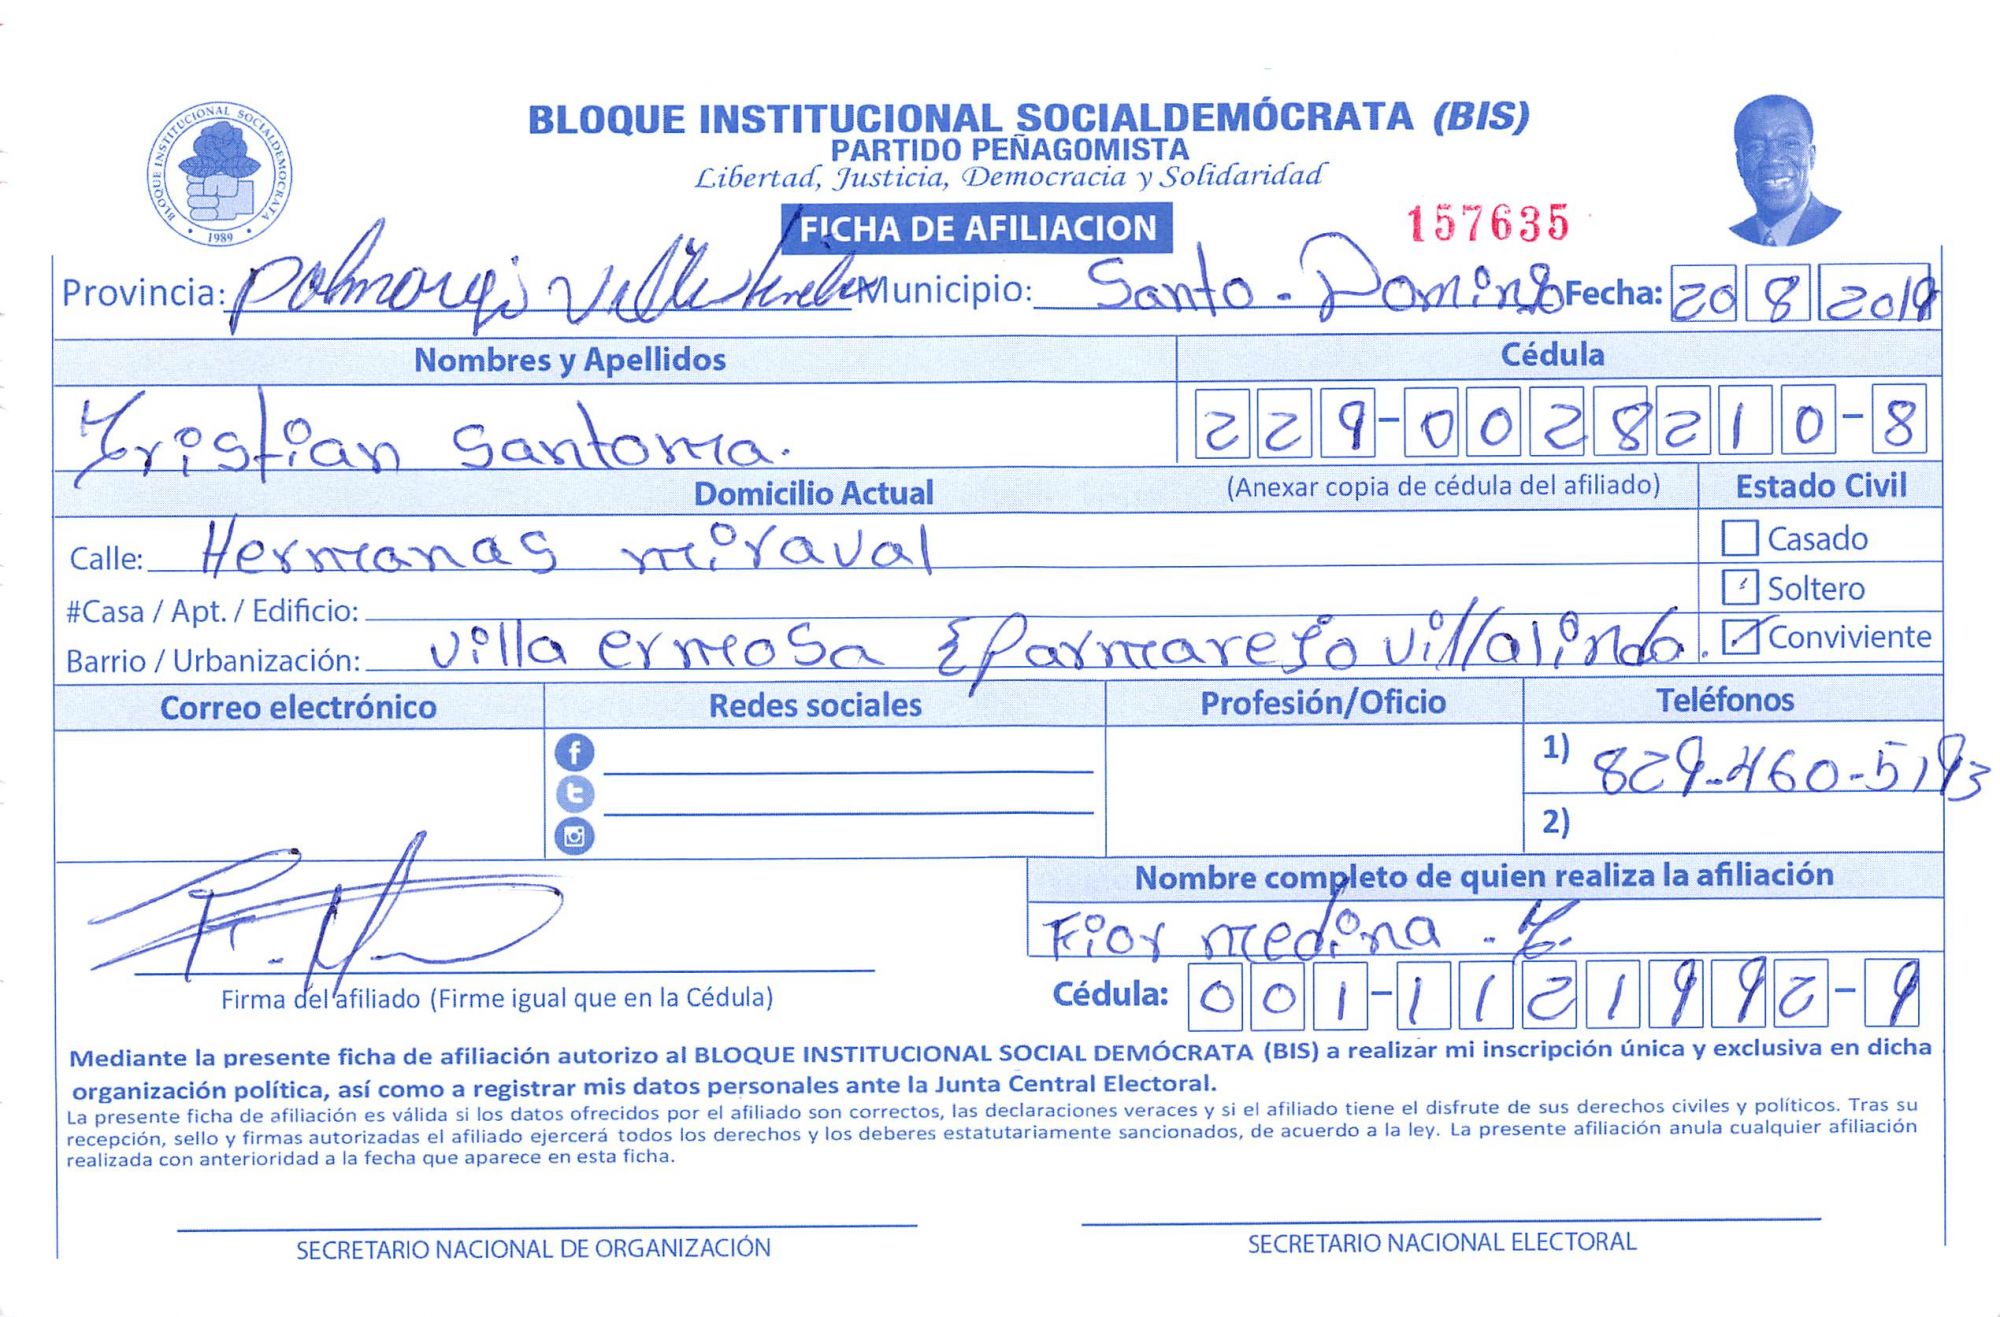 BLOQUE INSTITUCIONAL SOCIALDEMOCRATA
1989
BLOQUE INSTITUCIONAL SOCIALDEMÓCRATA (BIS)
PARTIDO PEÑAGOMISTA
Libertad, Justicia, Democracia y Solidaridad
FICHA DE AFILIACION
157635
Provincia: Municipio: Santo - Domingo Fecha: 20 8 2019
Nombres y Apellidos Cédula
Kristian Santoma. 229-0028210-8
Domicilio Actual (Anexar copia de cédula del afiliado) Estado Civil
Calle: Hermanas miraval Casado
#Casa / Apt. / Edificio: Soltero
Barrio / Urbanización: villa ermosa villalinda. Conviviente
Correo electrónico Redes sociales Profesión/Oficio Teléfonos
1) 829-460-5193
2)
Nombre completo de quien realiza la afiliación
Fior medina
Firma del afiliado (Firme igual que en la Cédula) Cédula: 001-1121992-9
Mediante la presente ficha de afiliación autorizo al BLOQUE INSTITUCIONAL SOCIAL DEMÓCRATA (BIS) a realizar mi inscripción única y exclusiva en dicha
organización política, así como a registrar mis datos personales ante la Junta Central Electoral.
La presente ficha de afiliación es válida si los datos ofrecidos por el afiliado son correctos, las declaraciones veraces y si el afiliado tiene el disfrute de sus derechos civiles y políticos. Tras su
recepción, sello y firmas autorizadas el afiliado ejercerá todos los derechos y los deberes estatutariamente sancionados, de acuerdo a la ley. La presente afiliación anula cualquier afiliación
realizada con anterioridad a la fecha que aparece en esta ficha.
SECRETARIO NACIONAL DE ORGANIZACIÓN SECRETARIO NACIONAL ELECTORAL